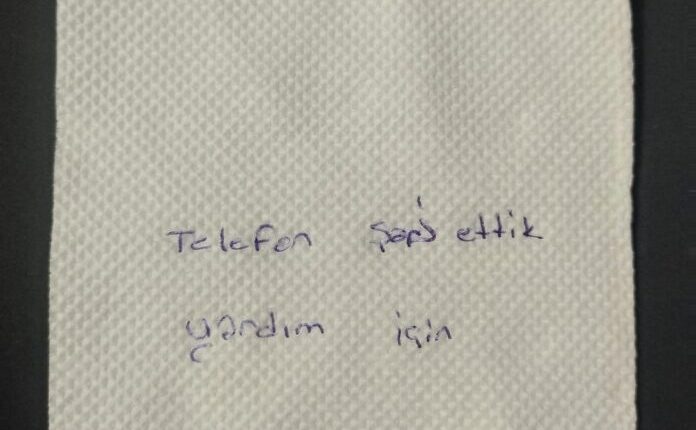 Telefon şarj ettik
yardım için